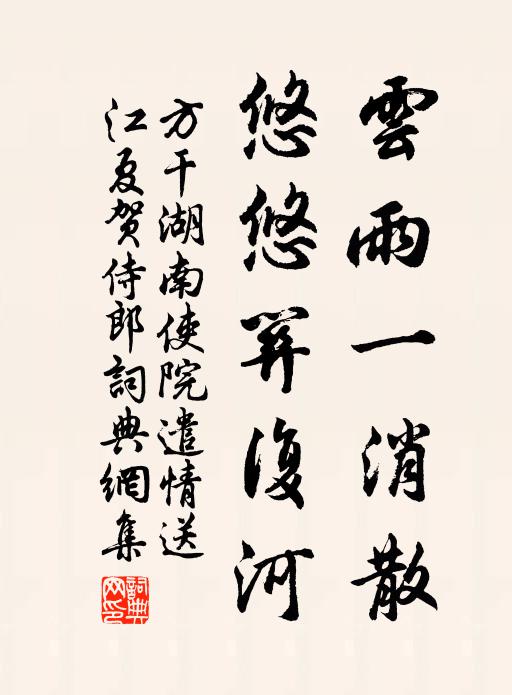 雲雨一消散
悠悠關復河
方干湖南使院遣情送
江夏賀侍郎詞典網集
詞典网印